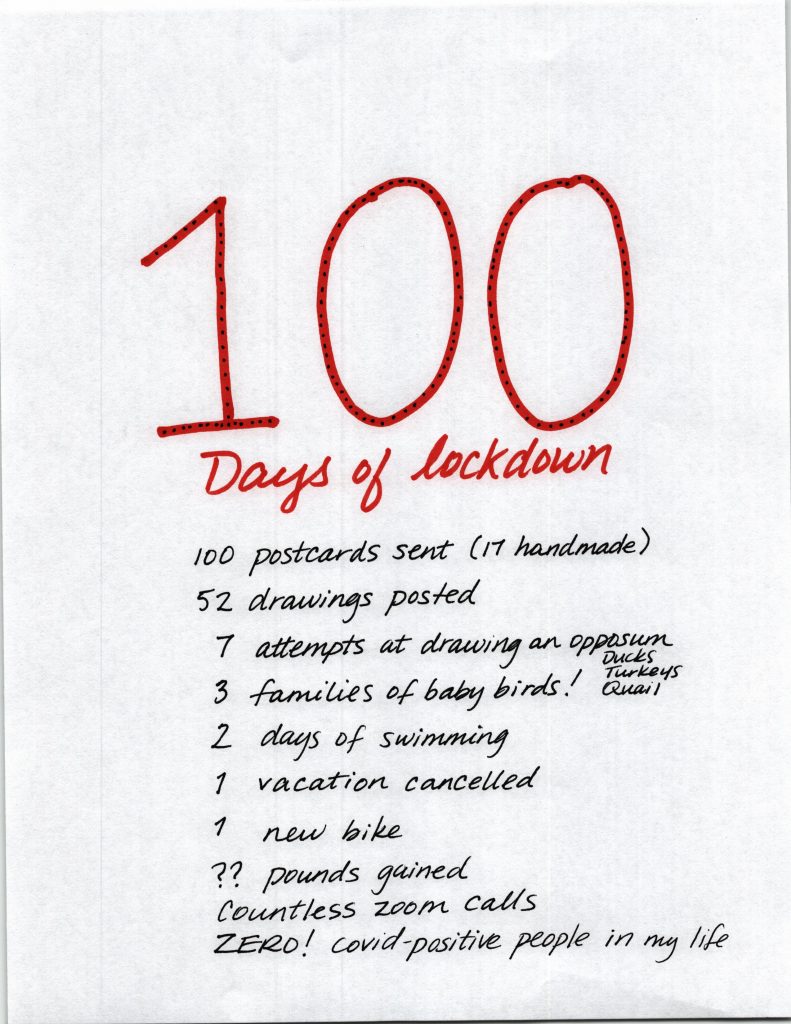 100
Days of lockdown
100 postcards sent (17 handmade)
52 drawings posted
7 attempts at drawing an opposum
3 families of baby birds! Ducks
Turkeys
Quail
2 days of swimming
1 vacation cancelled
1 new bike
?? pounds gained
Countless zoom calls
ZERO! covid-positive people in my life